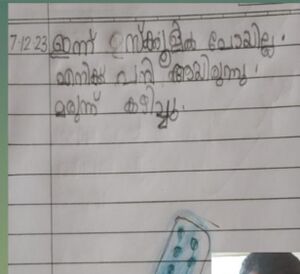 7-12-23 ഇന്ന് ഉസ്ക്കൂളിൽ പോയില്ല.
എനിക്ക പനി ആയിരുന്നു.
മരുന്ന് കഴിച്ചു.